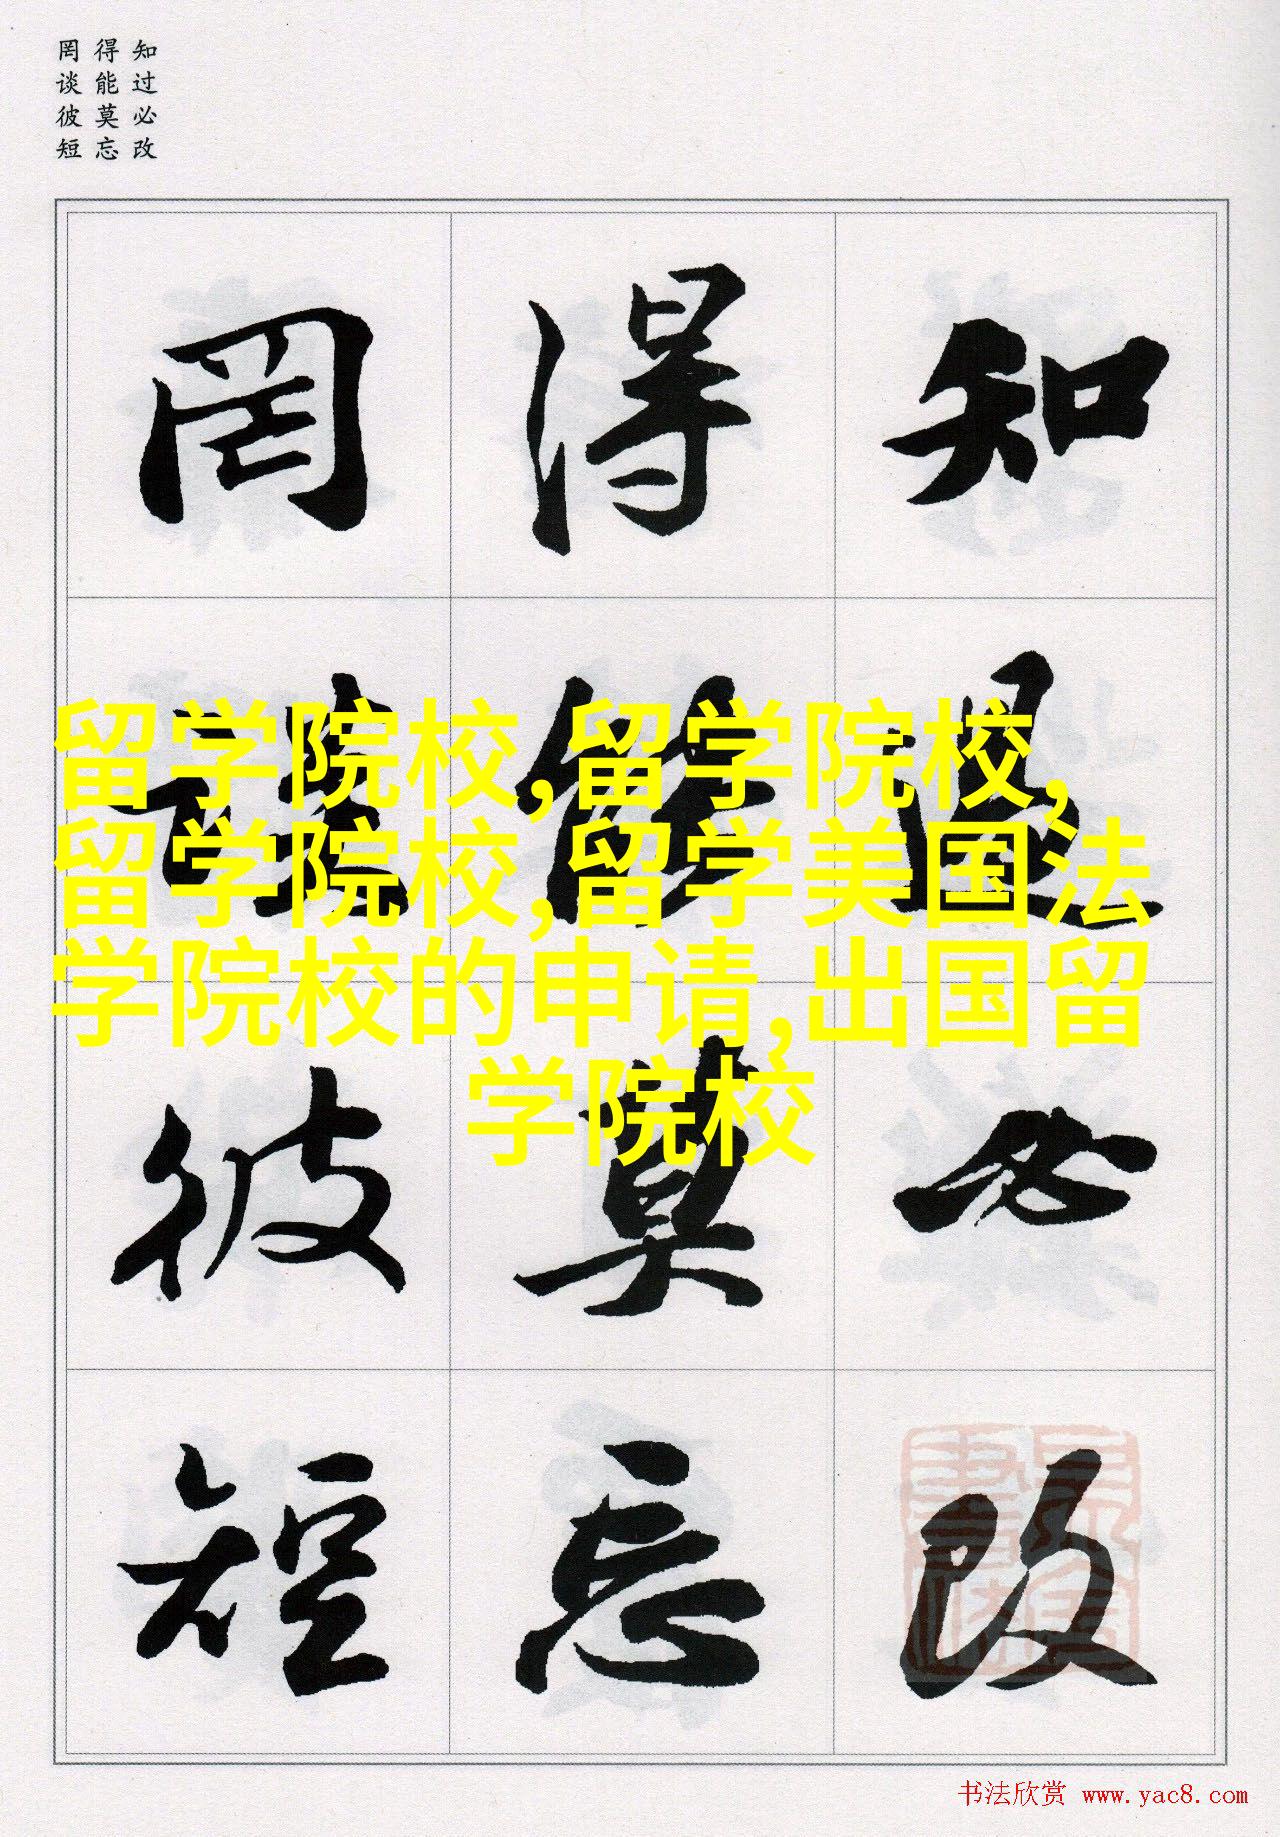 知过必改
得能莫忘
罔谈彼短
知过必改
得能莫忘
罔谈彼短
留学院校,留学院校,
留学院校,留学美国法
学院校的申请,出国留
学院校
书法欣赏 www.yac8.com